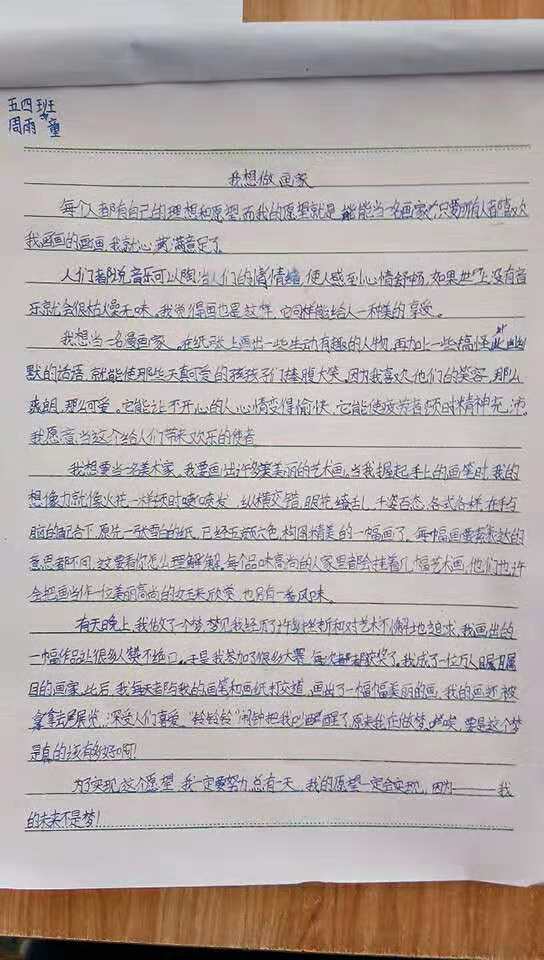 五四班
周雨童
我想做画家
每个人都有自己的理想和愿望,而我的愿望就是能当一名画家,只要所有人都喜欢
我画的画,我就心满意足了。
人们都说音乐可以陶冶人们的情绪,使人感到心情舒畅,如果世上没有音
乐就会很枯燥无味。我觉得画也是这样,它同样能给人一种美的享受。
我想当一名漫画家。在纸张上画出一些生动有趣的人物,再加上一些搞怪幽
默的话语,就能使那些天真可爱的孩子们捧腹大笑。因为我喜欢他们的笑容,那么
爽朗,那么可爱。它能让不开心的人心情变得愉快,它能使疲劳者顿时精神充沛。
我愿意当这个给人们带来欢乐的使者。
我想要当一名美术家,我要画出许多美丽的艺术画。当我握起手上的画笔时,我的
想像力就像火花一样顿时喷发,纵横交错,眼花缭乱,千姿百态,各式各样,在手与
脑的配合下,原先一张雪白的纸,已经五颜六色,构图精美的一幅画了。每幅画要表达的
意思都不同,这要看你怎么理解,每个品味高尚的人家里都会挂着几幅艺术画,他们也许
会把画当作一位美丽高尚的女王来欣赏,也另有一番风味。
有天晚上,我做了个梦,梦见我经历了许多挫折和对艺术不懈地追求,我画出的
一幅作品让很多人赞不绝口。于是我参加了很多大赛,每次都获奖了,我成了一位万人瞩
目的画家,此后,我每天都与我的画笔和画纸打交道,画出了一幅幅美丽的画,我的画还被
拿去展览,深受人们喜爱,“铃铃铃”闹钟把我叫醒了,原来我在做梦。哎,要是这个梦
是真的该有多好啊!
为了实现这个愿望,我一定要努力,总有一天,我的愿望一定会实现,因为——我
的未来不是梦!